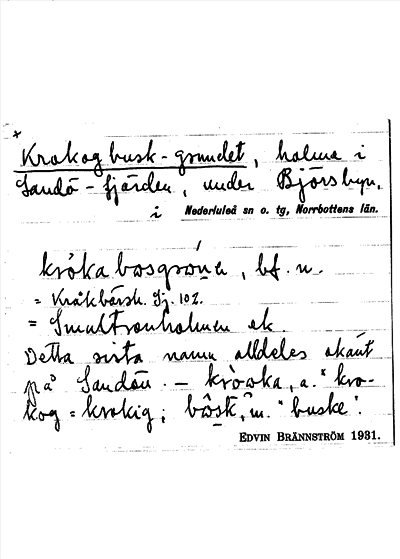 ×
Krokogbusk-grundet, holme i
Sandö-fjärden, under Björsbyn,
i Nederluleå sn o. tg, Norrbottens län.
kròka bosgrona, bf. n.
= Kråkbärsh. Sj. 102.
= Smultronholmen ek.
Detta sista namn alldeles okänt
på Sandön. – a. "kro-
kog = krokig; m. "buske".
EDVIN BRÄNNSTRÖM 1931.